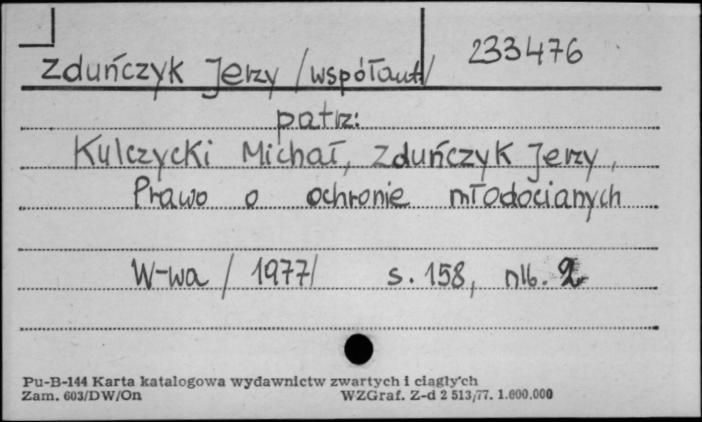 Zduńczyk Jerzy /współaut/ 233476
patrz:
Kulczycki Michał, Zduńczyk Jerzy,
Prawo o ochronie młodocianych
W-wa /1977/ s. 158, nlb. 2
Pu-B-144 Karta katalogowa wydawnictw zwartych i ciągłych
Zam. 603/DW/On WZGraf. Z-d 2 513/77. 1.600.000